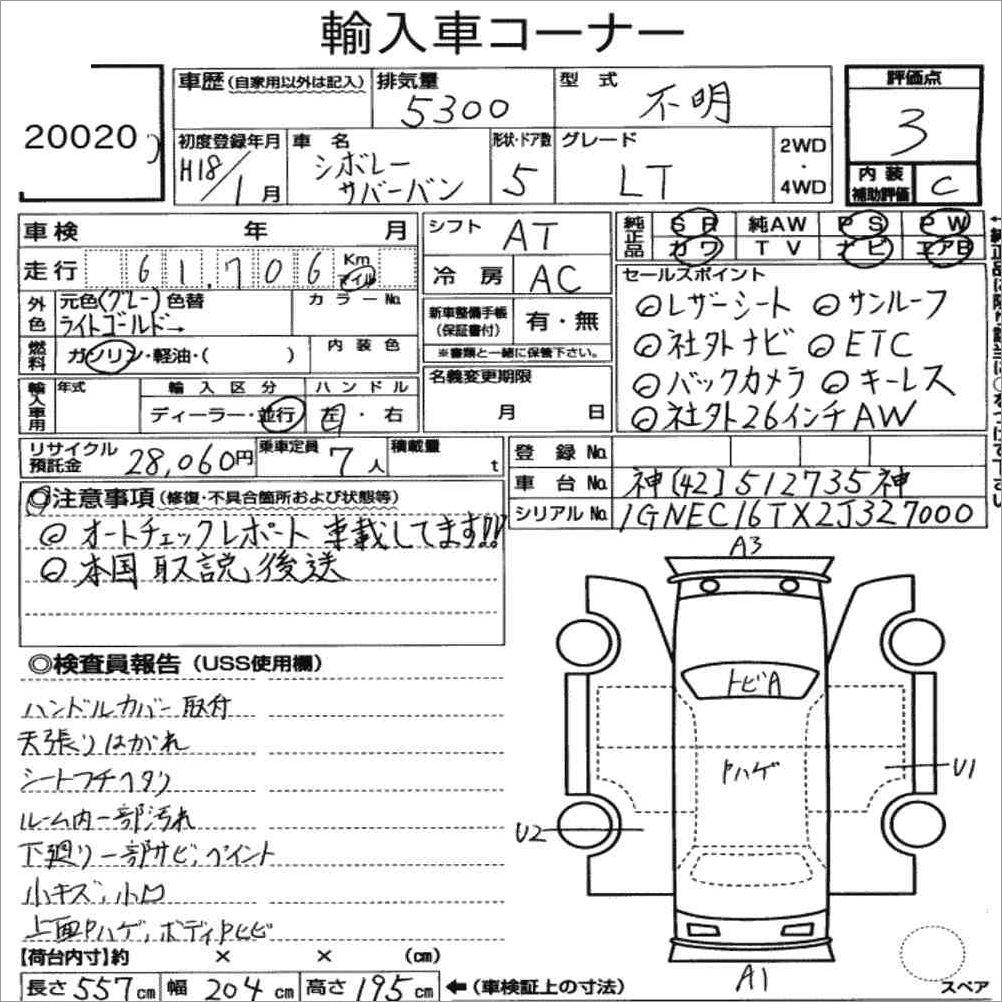 輸入車コーナー
20020
車歴(自家用以外は記入) 排気量 5300 型式 不明 評価点 3
初度登録年月 H18/1月 車名 シボレー サバーバン 形状・ドア数 5 グレード LT 2WD・4WD 内装補助評価 C
車検 年 月
シフト AT
純正品 SR 純AW PS PW
カワ TV ナビ エアB
走行 61,706 Km マイル
冷房 AC
外色 元色(グレー)色替 カラーNo.
ライトゴールド→
新車整備手帳(保証書付) 有・無
※書類と一緒に保管下さい。
燃料 ガソリン・軽油・( ) 内装色
輸入車用 年式 輸入区分 ディーラー・並行 ハンドル 左・右
名義変更期限 月 日
セールスポイント
◎レザーシート ◎サンルーフ
◎社外ナビ ◎ETC
◎バックカメラ ◎キーレス
◎社外26インチAW
リサイクル預託金 28,060円 乗車定員 7人 積載量 t
登録No.
車台No. 神[42]512735神
シリアルNo. 1GNEC16TX2J327000
◎注意事項(修復・不具合箇所および状態等)
◎オートチェックレポート車載してます!!
◎本国取説後送
◎検査員報告(USS使用欄)
ハンドルカバー取付
天張りはがれ
シートフチヘタリ
ルーム内一部汚れ
下廻り一部サビ,ペイント
小キズ,小凹
上面Pハゲ,ボディPヒビ
A3
トビA
Pハゲ
U1
U2
A1
スペア
【荷台内寸】約 × × (cm)
長さ557cm 幅204cm 高さ195cm ←(車検証上の寸法)